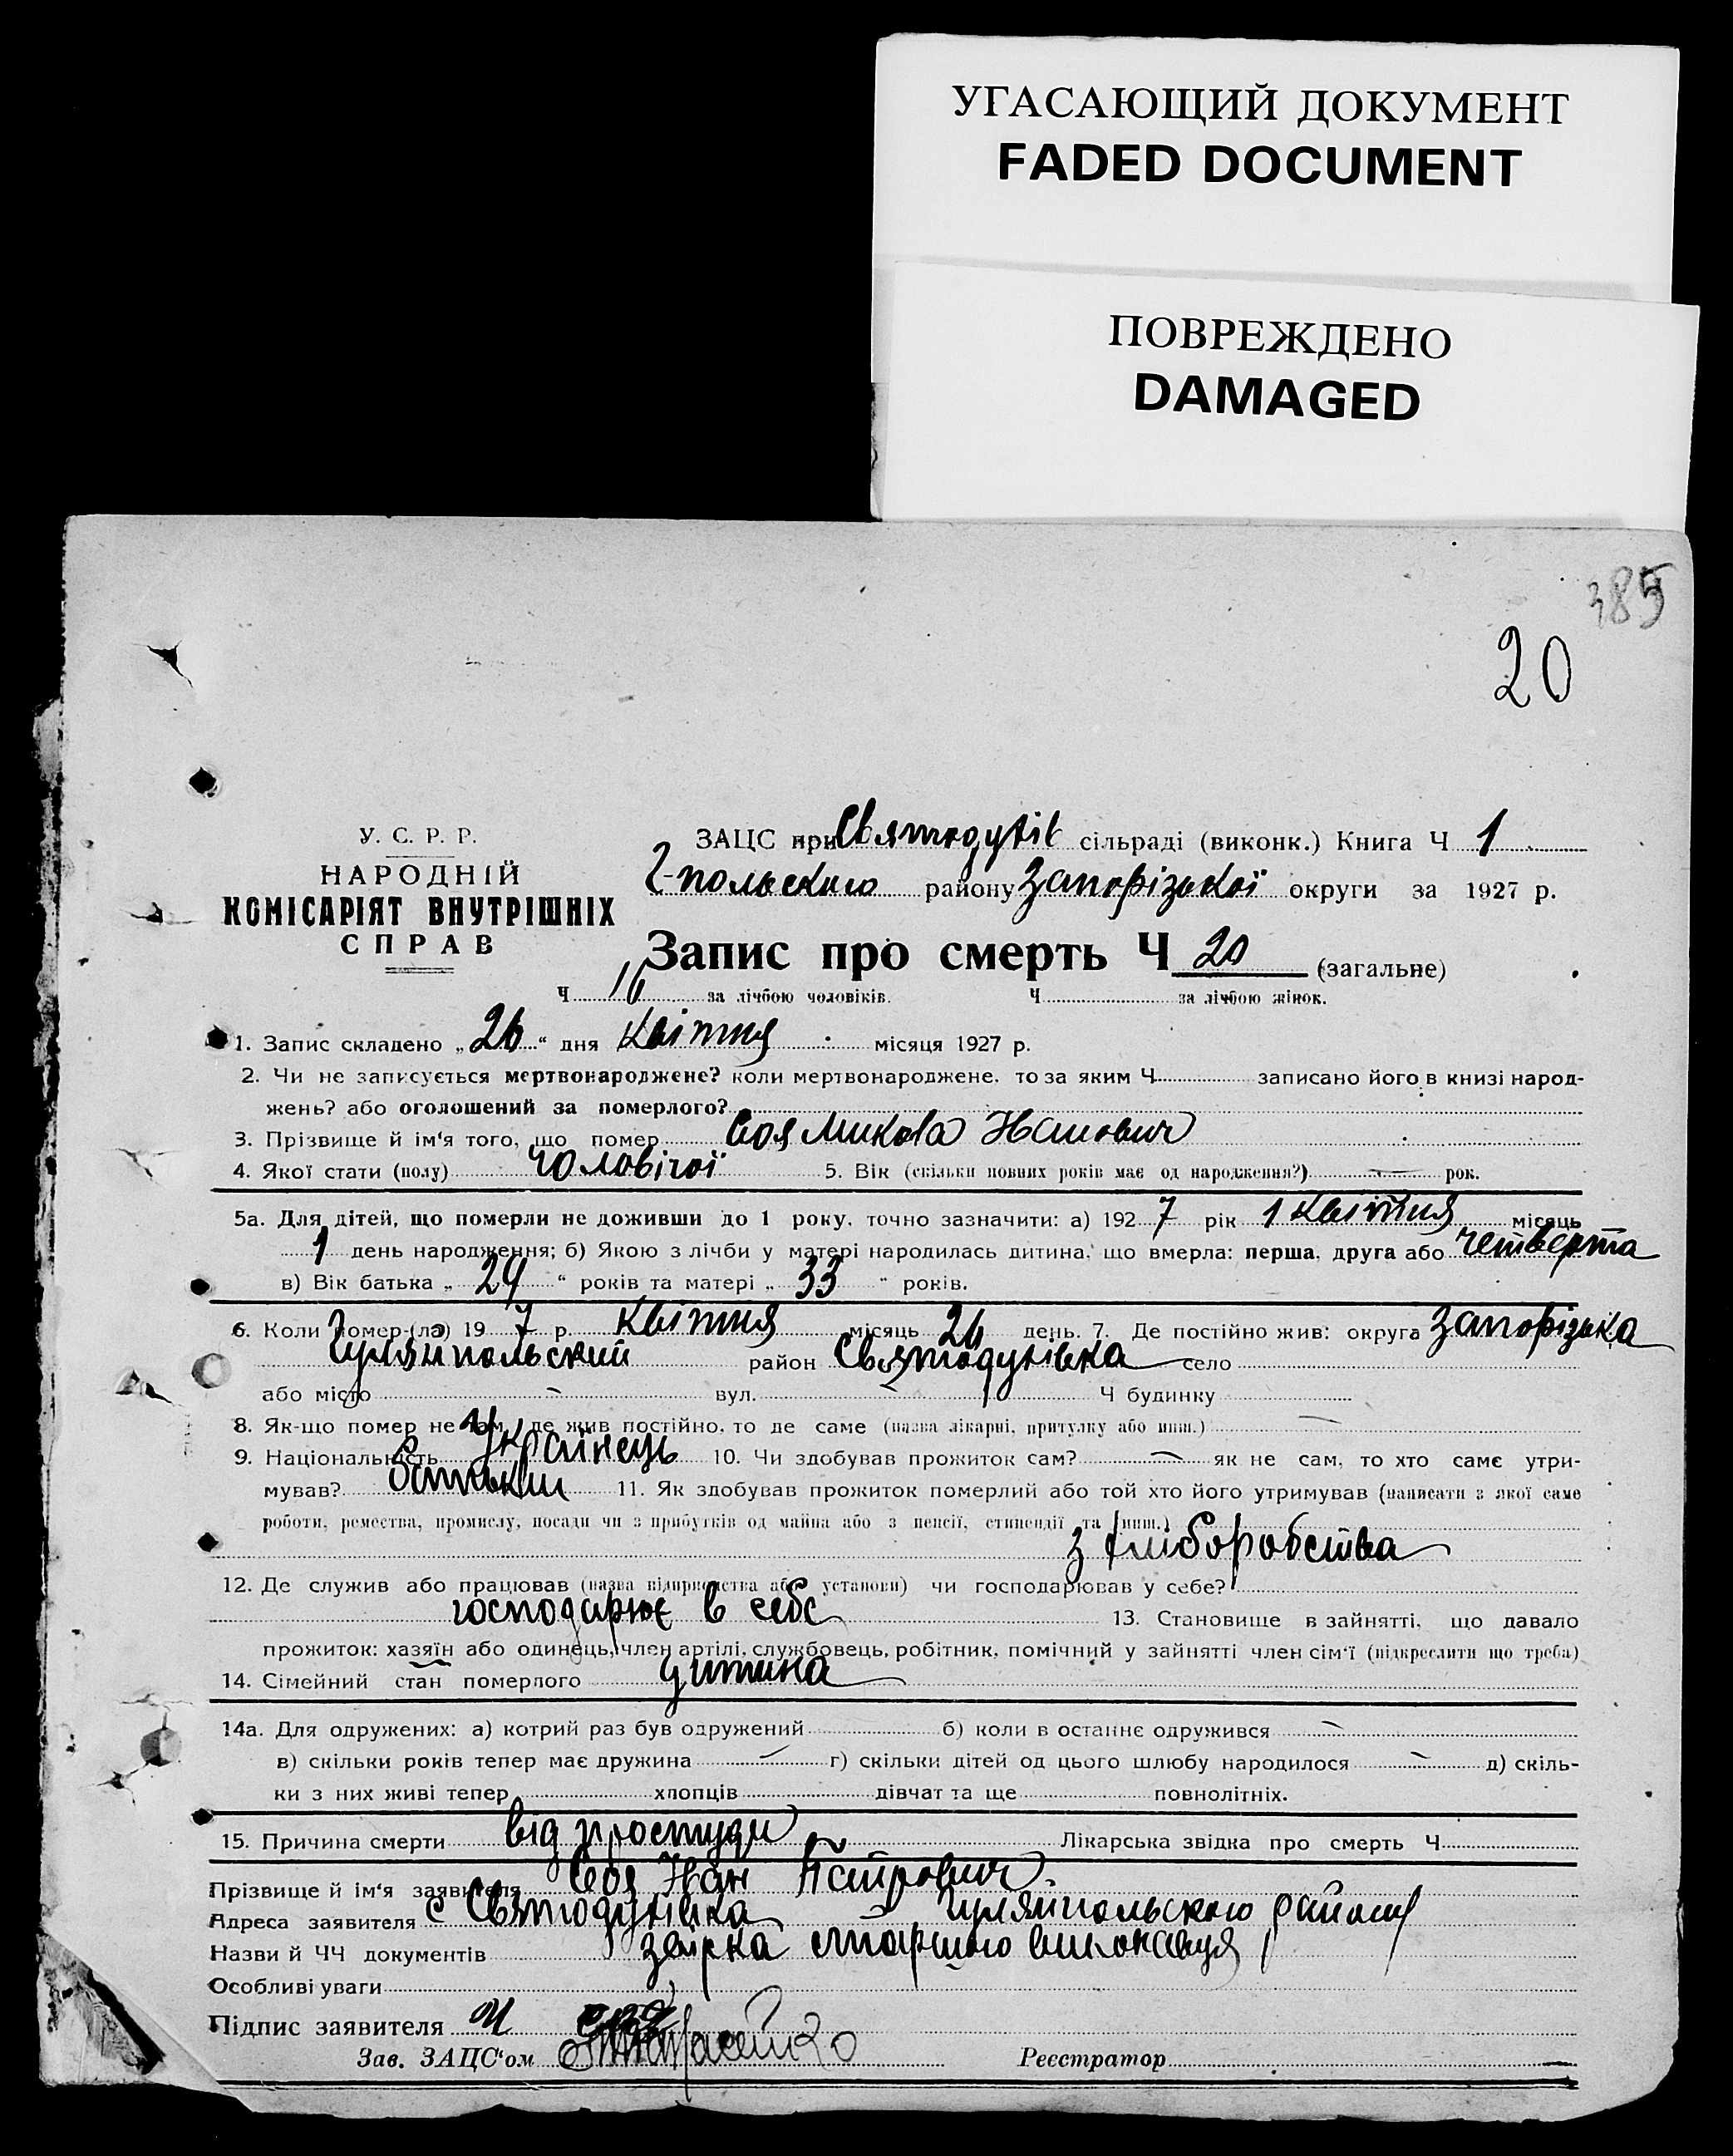 УГАСАЮЩИЙ ДОКУМЕНТ
FADED DOCUMENT
ПОВРЕЖДЕНО
DAMAGED
385
20
У. С. Р. Р.
НАРОДНІЙ
КОМІСАРІЯТ ВНУТРІШНІХ
СПРАВ
ЗАЦС при Святодухів сільраді (виконк.) Книга Ч 1
Г-польского району Запорізької округи за 1927 р.
Запис про смерть Ч 20 (загальне)
Ч 16 за лічбою чоловіків. Ч за лічбою жінок.
1. Запис складено „26“ дня Квітня місяця 1927 р.
2. Чи не записується мертвонароджене? коли мертвонароджене, то за яким Ч. записано його в книзі народ-
жень? або оголошений за померлого?
3. Прізвище й ім'я того, що помер Соя Микола Иванович
4. Якої стати (полу) чоловічої 5. Вік (скільки повних років має од народження?) — рок.
5а. Для дітей, що померли не доживши до 1 року, точно зазначити: а) 1927 рік 1 Квітня місяць
1 день народження; б) Якою з лічби у матері народилась дитина, що вмерла: перша, друга або четверта
в) Вік батька „29“ років та матері „33“ років.
6. Коли помер-(ла) 1927 р. Квітня місяць 26 день. 7. Де постійно жив: округа Запорізька
Гуляйпольский район Святодухівка село
або місто — вул. — Ч будинку
8. Як-що помер не там, де жив постійно, то де саме (назва лікарні, притулку або инш.) —
9. Національність Українець 10. Чи здобував прожиток сам? — як не сам, то хто саме утри-
мував? батьки 11. Як здобував прожиток померлий або той хто його утримував (написати з якої саме
роботи, ремества, промислу, посади чи з прибутків од майна або з пенсії, стипендії та инш.)
з хліборобства
12. Де служив або працював (назва підприємства або установи) чи господарював у себе?
господарює в себе 13. Становище в зайнятті, що давало
прожиток: хазяїн або одинець, член артілі, службовець, робітник, помічний у зайнятті член сім'ї (підкреслити що треба)
14. Сімейний стан померлого дитина
14а. Для одружених: а) котрий раз був одружений б) коли в останнє одружився —
в) скільки років тепер має дружина — г) скільки дітей од цього шлюбу народилося — д) скіль-
ки з них живі тепер хлопців дівчат та ще повнолітніх.
15. Причина смерти від простуди Лікарська звідка про смерть Ч
Прізвище й ім'я заявителя Соя Иван Петрович
Адреса заявителя с Святодухівка Гуляйпольского району
Назви й ЧЧ документів старшого виконавця
Особливі уваги
Підпис заявителя И
Зав. ЗАЦС'ом Реєстратор